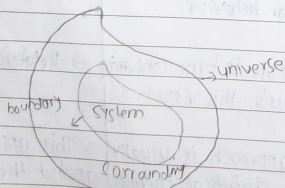 universe
boundary
System
Corroundry